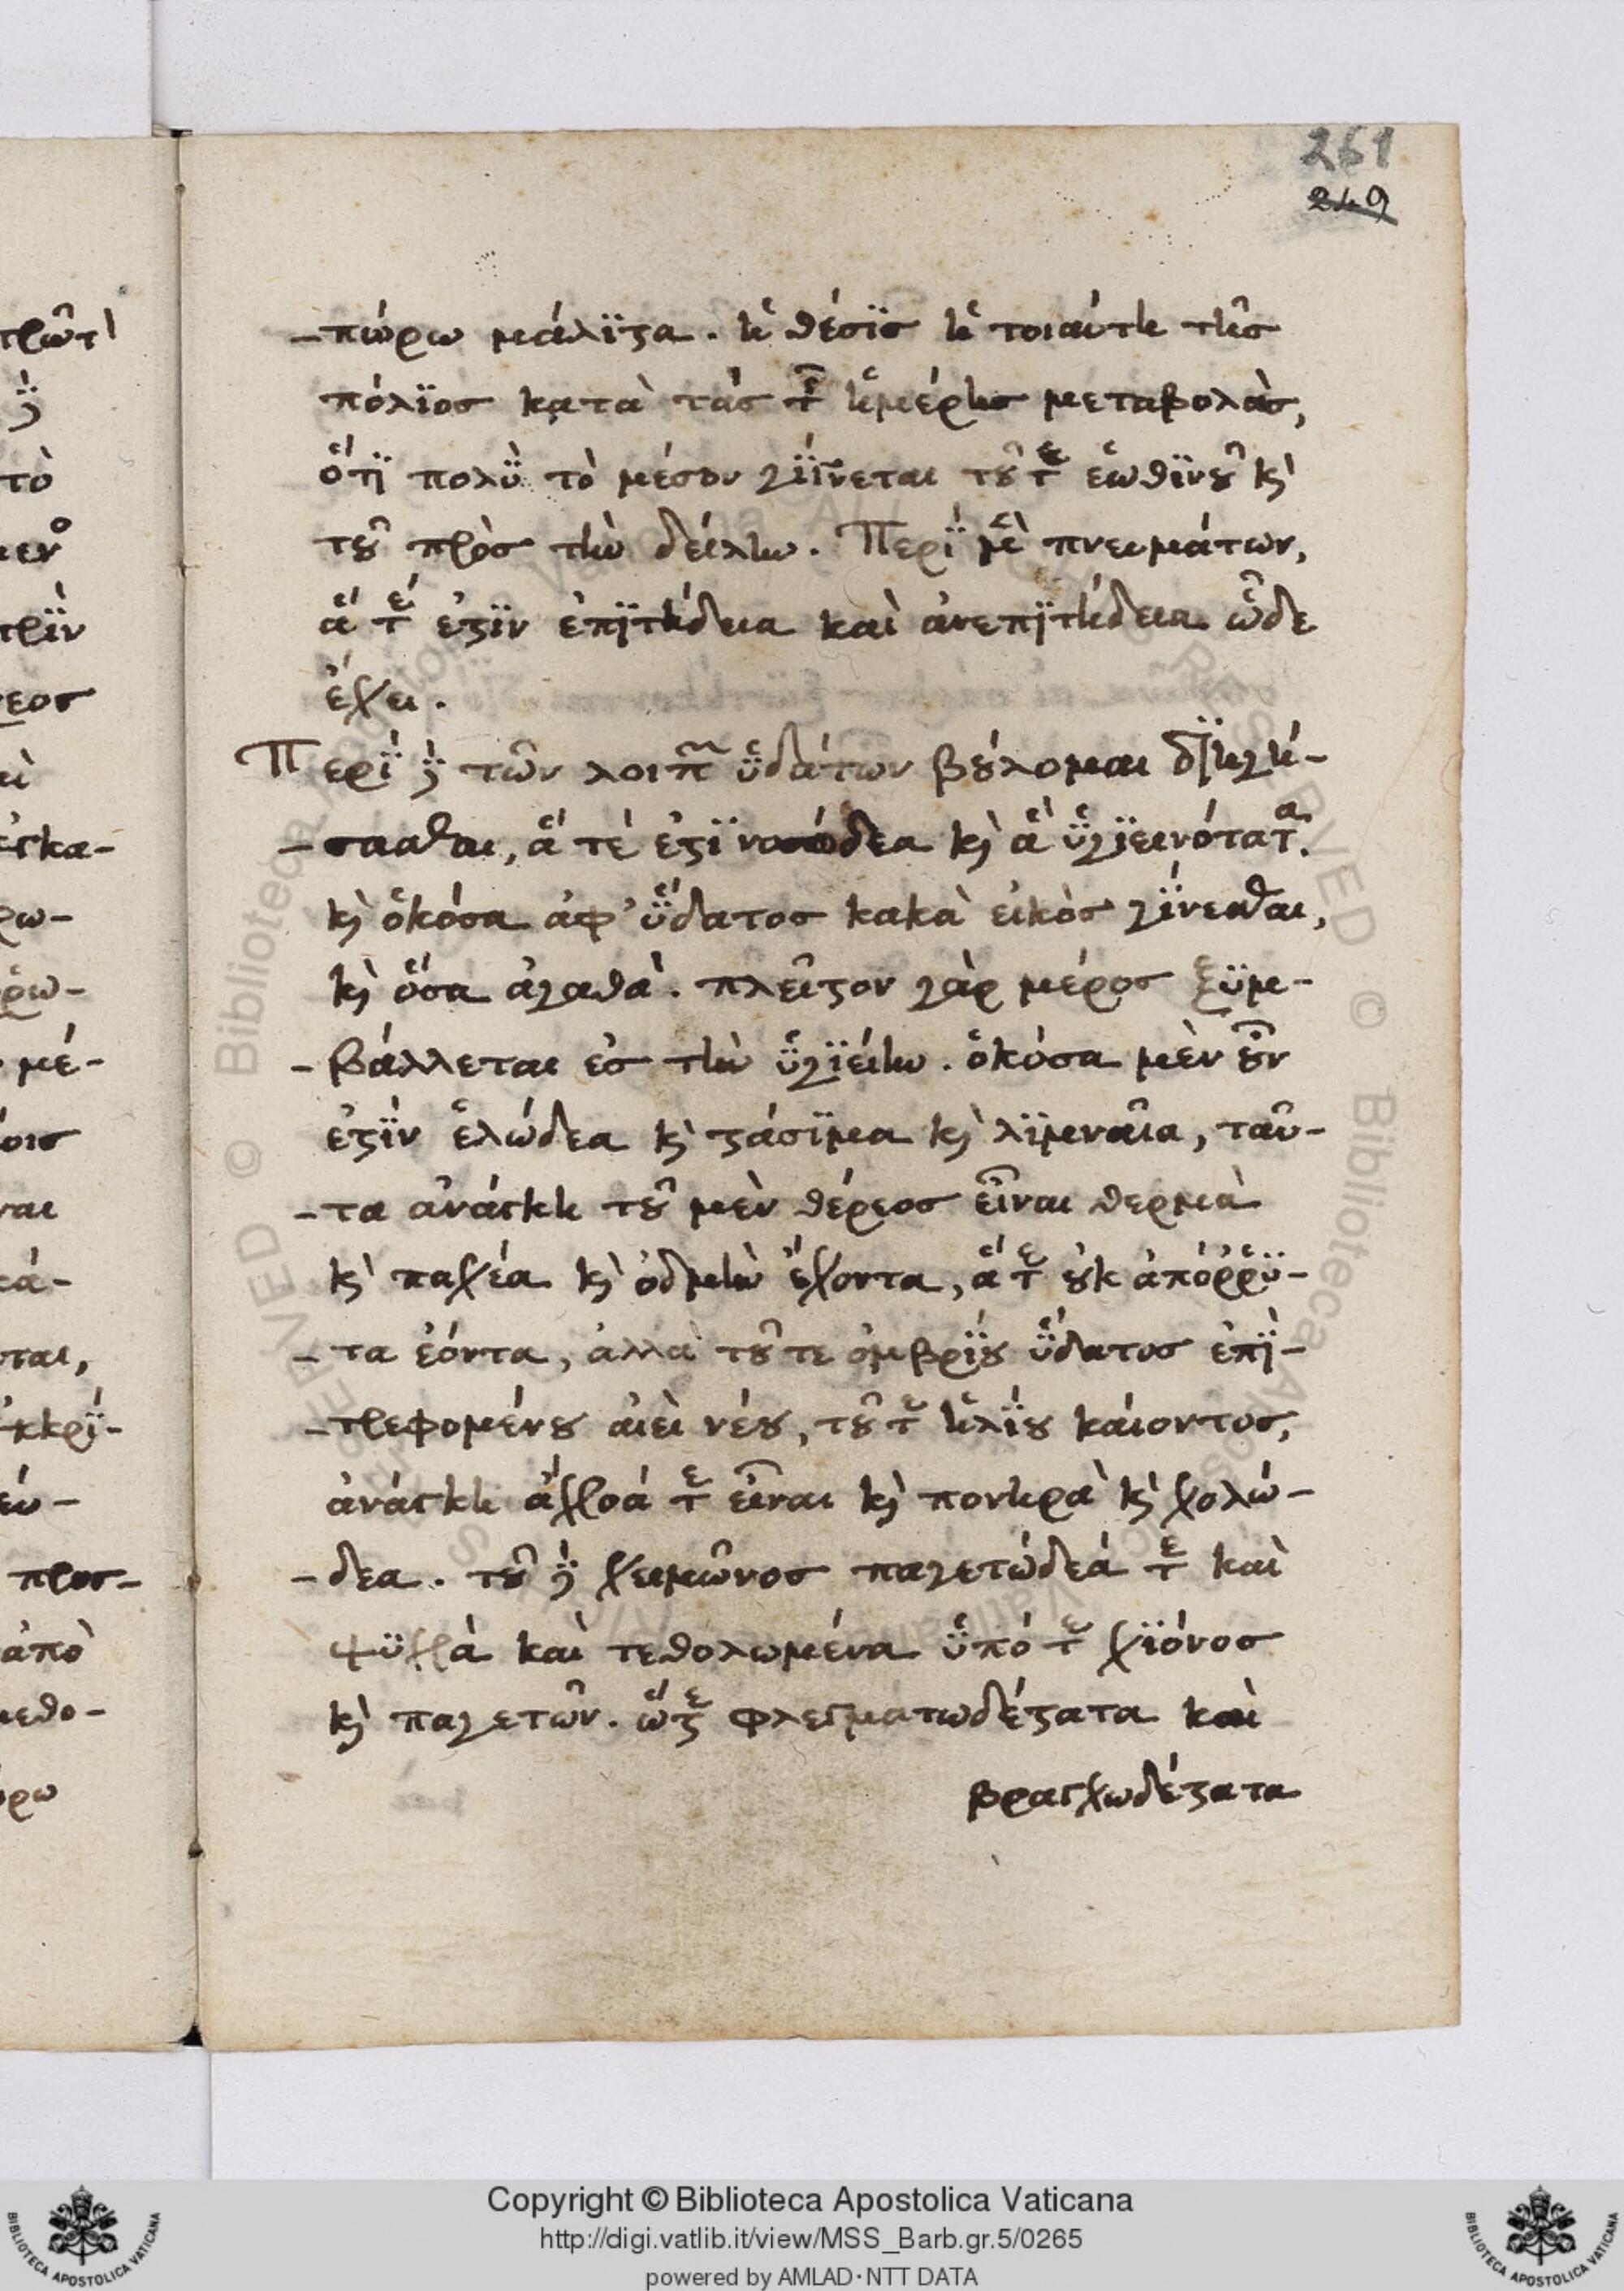 261
249
-πώρῳ μάλιϛα. ἡ θέσϊσ ἡ τοιαύτη τῆσ
πόλϊοσ κατὰ τὰσ τ῀ ἡμέρησ μεταβολὰσ,
ὅτϊ πολὺ τὸ μέσον γΐνεται τοῦ τε ἑωθϊνοῦ κὶ
τοῦ πρὸσ τὴν δείλην. Περὶ μὲ πνευμάτων,
ἅ τέ ἐϛϊν ἐπϊτήδεια καὶ ἀνεπϊτήδεια ὧδε
ἔχει.
Περὶ δ̀ὲ τῶν λοιπ῀ ὑδάτων βούλομαι δϊηγή-
-σασθαι, ἅ τέ ἐϛϊ νοσώδεα κὶ ἃ ὑγϊεινότατα.
κὶ ὁκόσα ἀφ' ὕδατοσ κακὰ εἰκὸσ γΐνεσθαι,
κὶ ὅσα ἀγαθὰ. πλεῖϛον γὰρ μέροσ ξϋμ-
-βάλλεται ἐσ τὴν ὑγϊείην. ὁκόσα μὲν οὖν
ἐϛϊν ἑλώδεα κὶ ϛάσϊμα κὶ λϊμναῖα, ταῦ-
-τα ἀνάγκη τοῦ μὲν θέρεοσ εἶναι θερμὰ
κὶ παχέα κὶ ὀδμὴν ἔχοντα, ἅ τε οὐκ ἀπόῤῥϋ-
-τα ἐόντα, ἀλλὰ τοῦ τε ὀμβρΐου ὕδατοσ ἐπϊ-
-τρεφομένου αἰεὶ νέου, τοῦ τε ἡλΐου καίοντοσ,
ἀνάγκη ἄχροά τε εἶναι κὶ πονηρὰ κὶ χολώ-
-δεα. τοῦ δὲ χειμῶνοσ παγετώδεά τε καὶ
ψϋχρὰ καὶ τεθολωμένα ὑπό τε χϊόνοσ
κὶ παγετῶν. ὥϛε φλεγματωδέϛατα καὶ
βραγχωδέϛατα
Copyright © Biblioteca Apostolica Vaticana
http://digi.vatlib.it/view/MSS_Barb.gr.5/0265
powered by AMLAD·NTT DATA